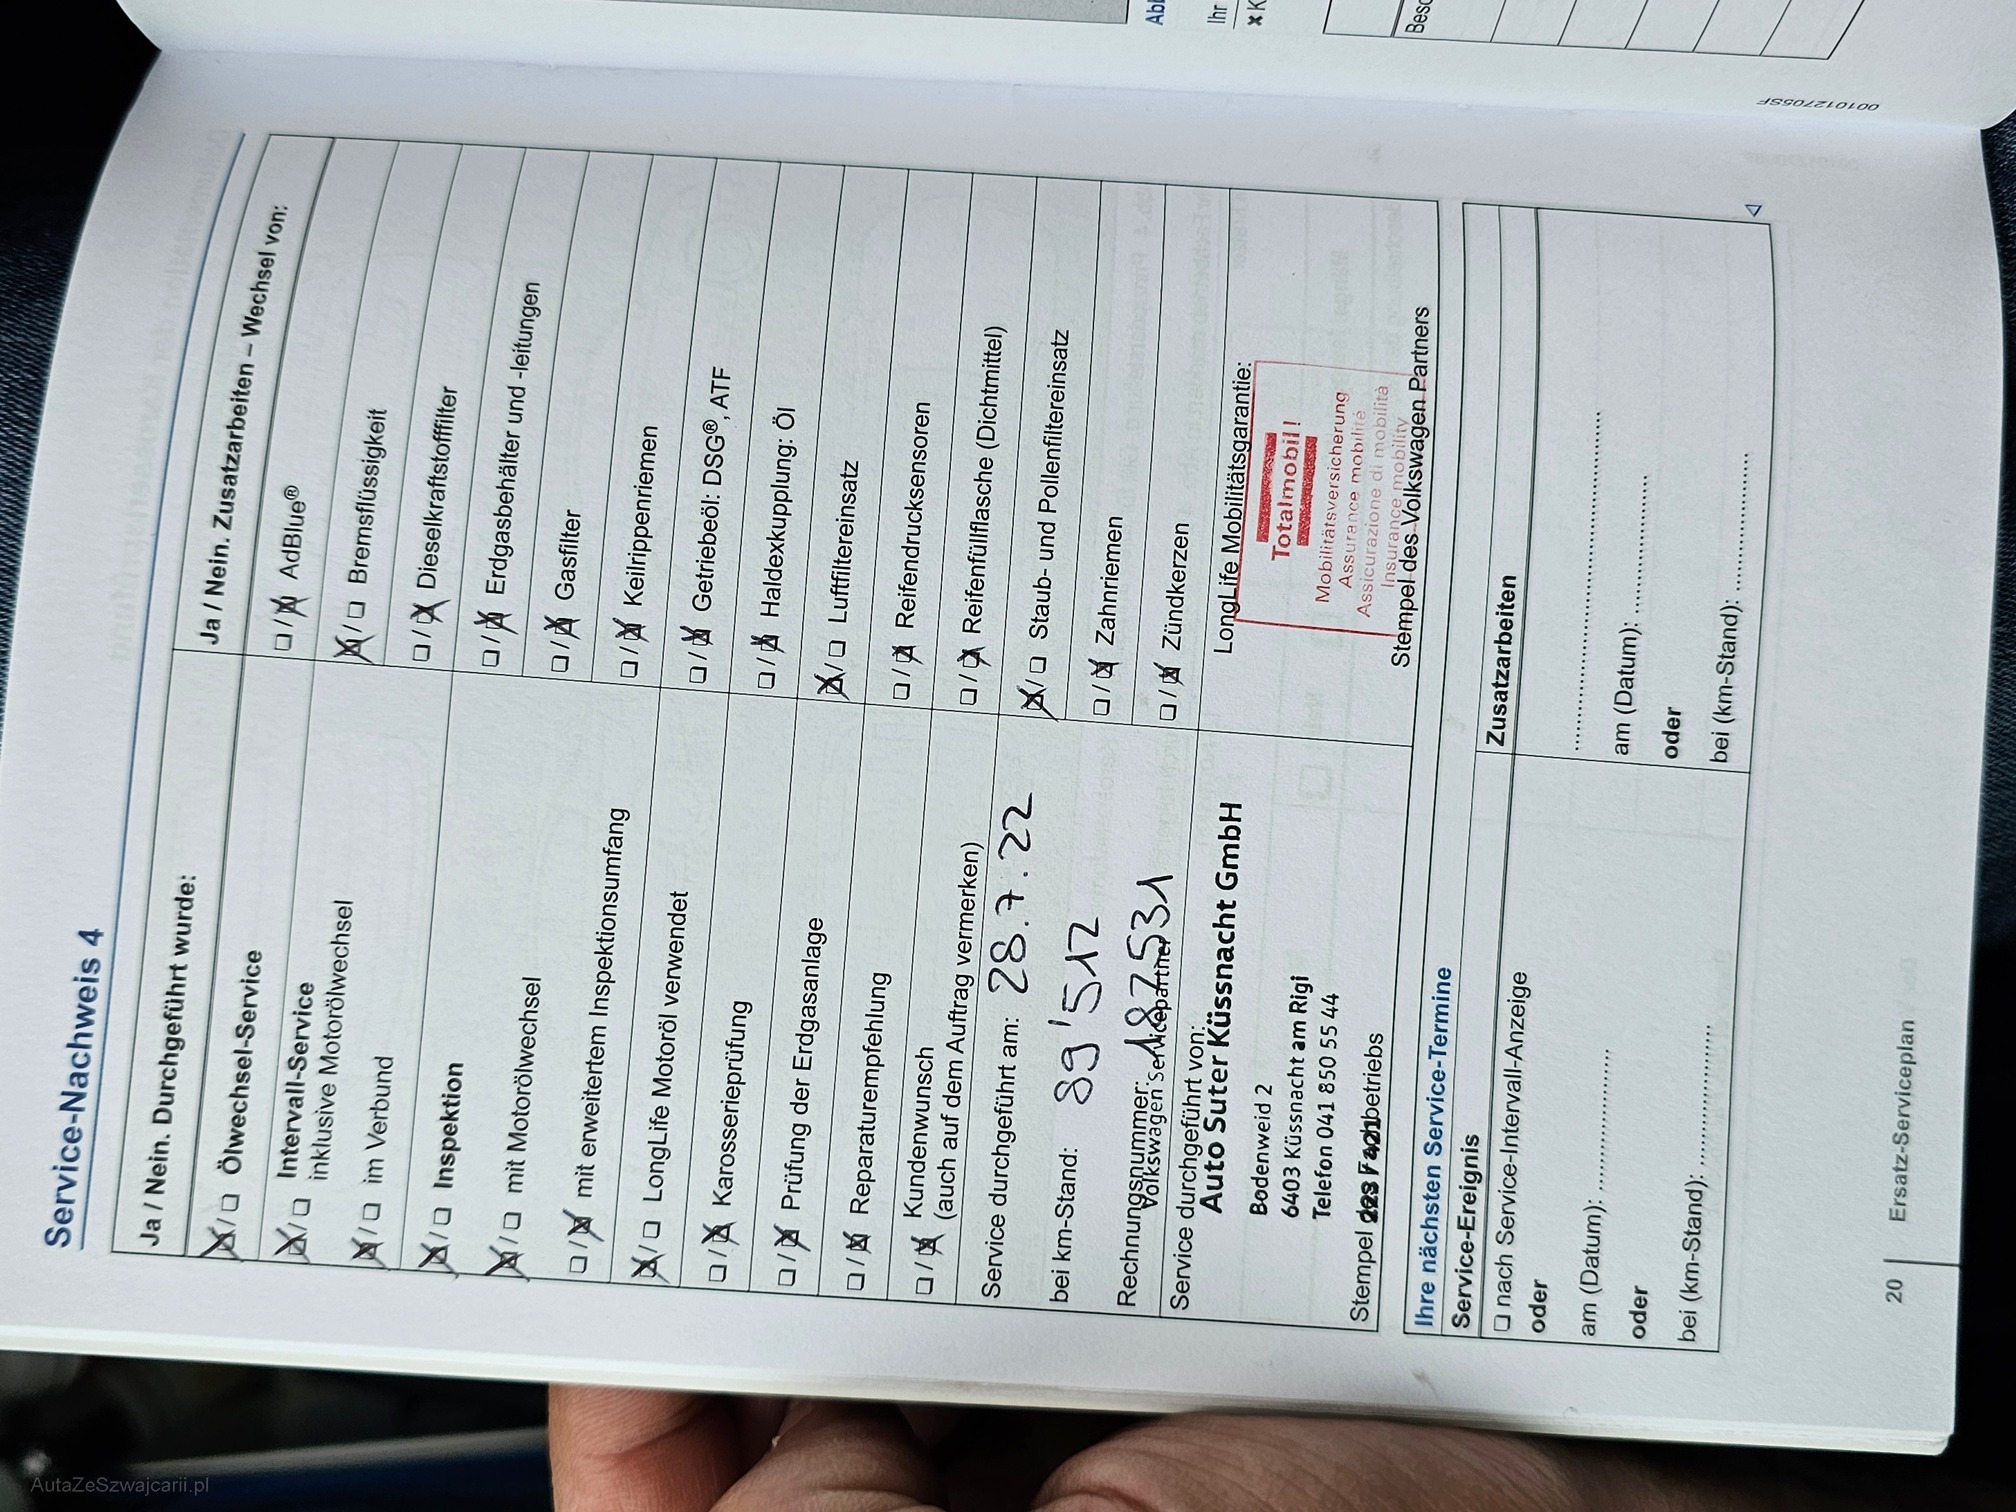 Service-Nachweis 4
Ja / Nein. Durchgeführt wurde:
☒/☐ Ölwechsel-Service
☒/☐ Intervall-Service
inklusive Motorölwechsel
☒/☐ im Verbund
☒/☐ Inspektion
☒/☐ mit Motorölwechsel
☐/☒ mit erweitertem Inspektionsumfang
☒/☐ LongLife Motoröl verwendet
☐/☒ Karosserieprüfung
☐/☒ Prüfung der Erdgasanlage
☐/☒ Reparaturempfehlung
☐/☒ Kundenwunsch
(auch auf dem Auftrag vermerken)
Service durchgeführt am: 28.7.22
bei km-Stand: 89'512
Rechnungsnummer: 187531
Volkswagen Servicepartner
Service durchgeführt von:
Auto Suter Küssnacht GmbH
Bodenweid 2
6403 Küssnacht am Rigi
Telefon 041 850 55 44
Stempel des Fachbetriebs
Ja / Nein. Zusatzarbeiten – Wechsel von:
☐/☒ AdBlue®
☒/☐ Bremsflüssigkeit
☐/☒ Dieselkraftstofffilter
☐/☒ Erdgasbehälter und -leitungen
☐/☒ Gasfilter
☐/☒ Keilrippenriemen
☐/☒ Getriebeöl: DSG®, ATF
☐/☒ Haldexkupplung: Öl
☒/☐ Luftfiltereinsatz
☐/☒ Reifendrucksensoren
☐/☒ Reifenfüllflasche (Dichtmittel)
☒/☐ Staub- und Pollenfiltereinsatz
☐/☒ Zahnriemen
☐/☒ Zündkerzen
LongLife Mobilitätsgarantie:
Totalmobil!
Mobilitätsversicherung
Assurance mobilité
Assicurazione di mobilità
Insurance mobility
Stempel des Volkswagen Partners
Ihre nächsten Service-Termine
Service-Ereignis
☐ nach Service-Intervall-Anzeige
oder
am (Datum): ....................
oder
bei (km-Stand): ....................
Zusatzarbeiten
....................
am (Datum): ....................
oder
bei (km-Stand): ....................
20 Ersatz-Serviceplan
001012705SF
Ihr
Besc
AutaZeSzwajcarii.pl